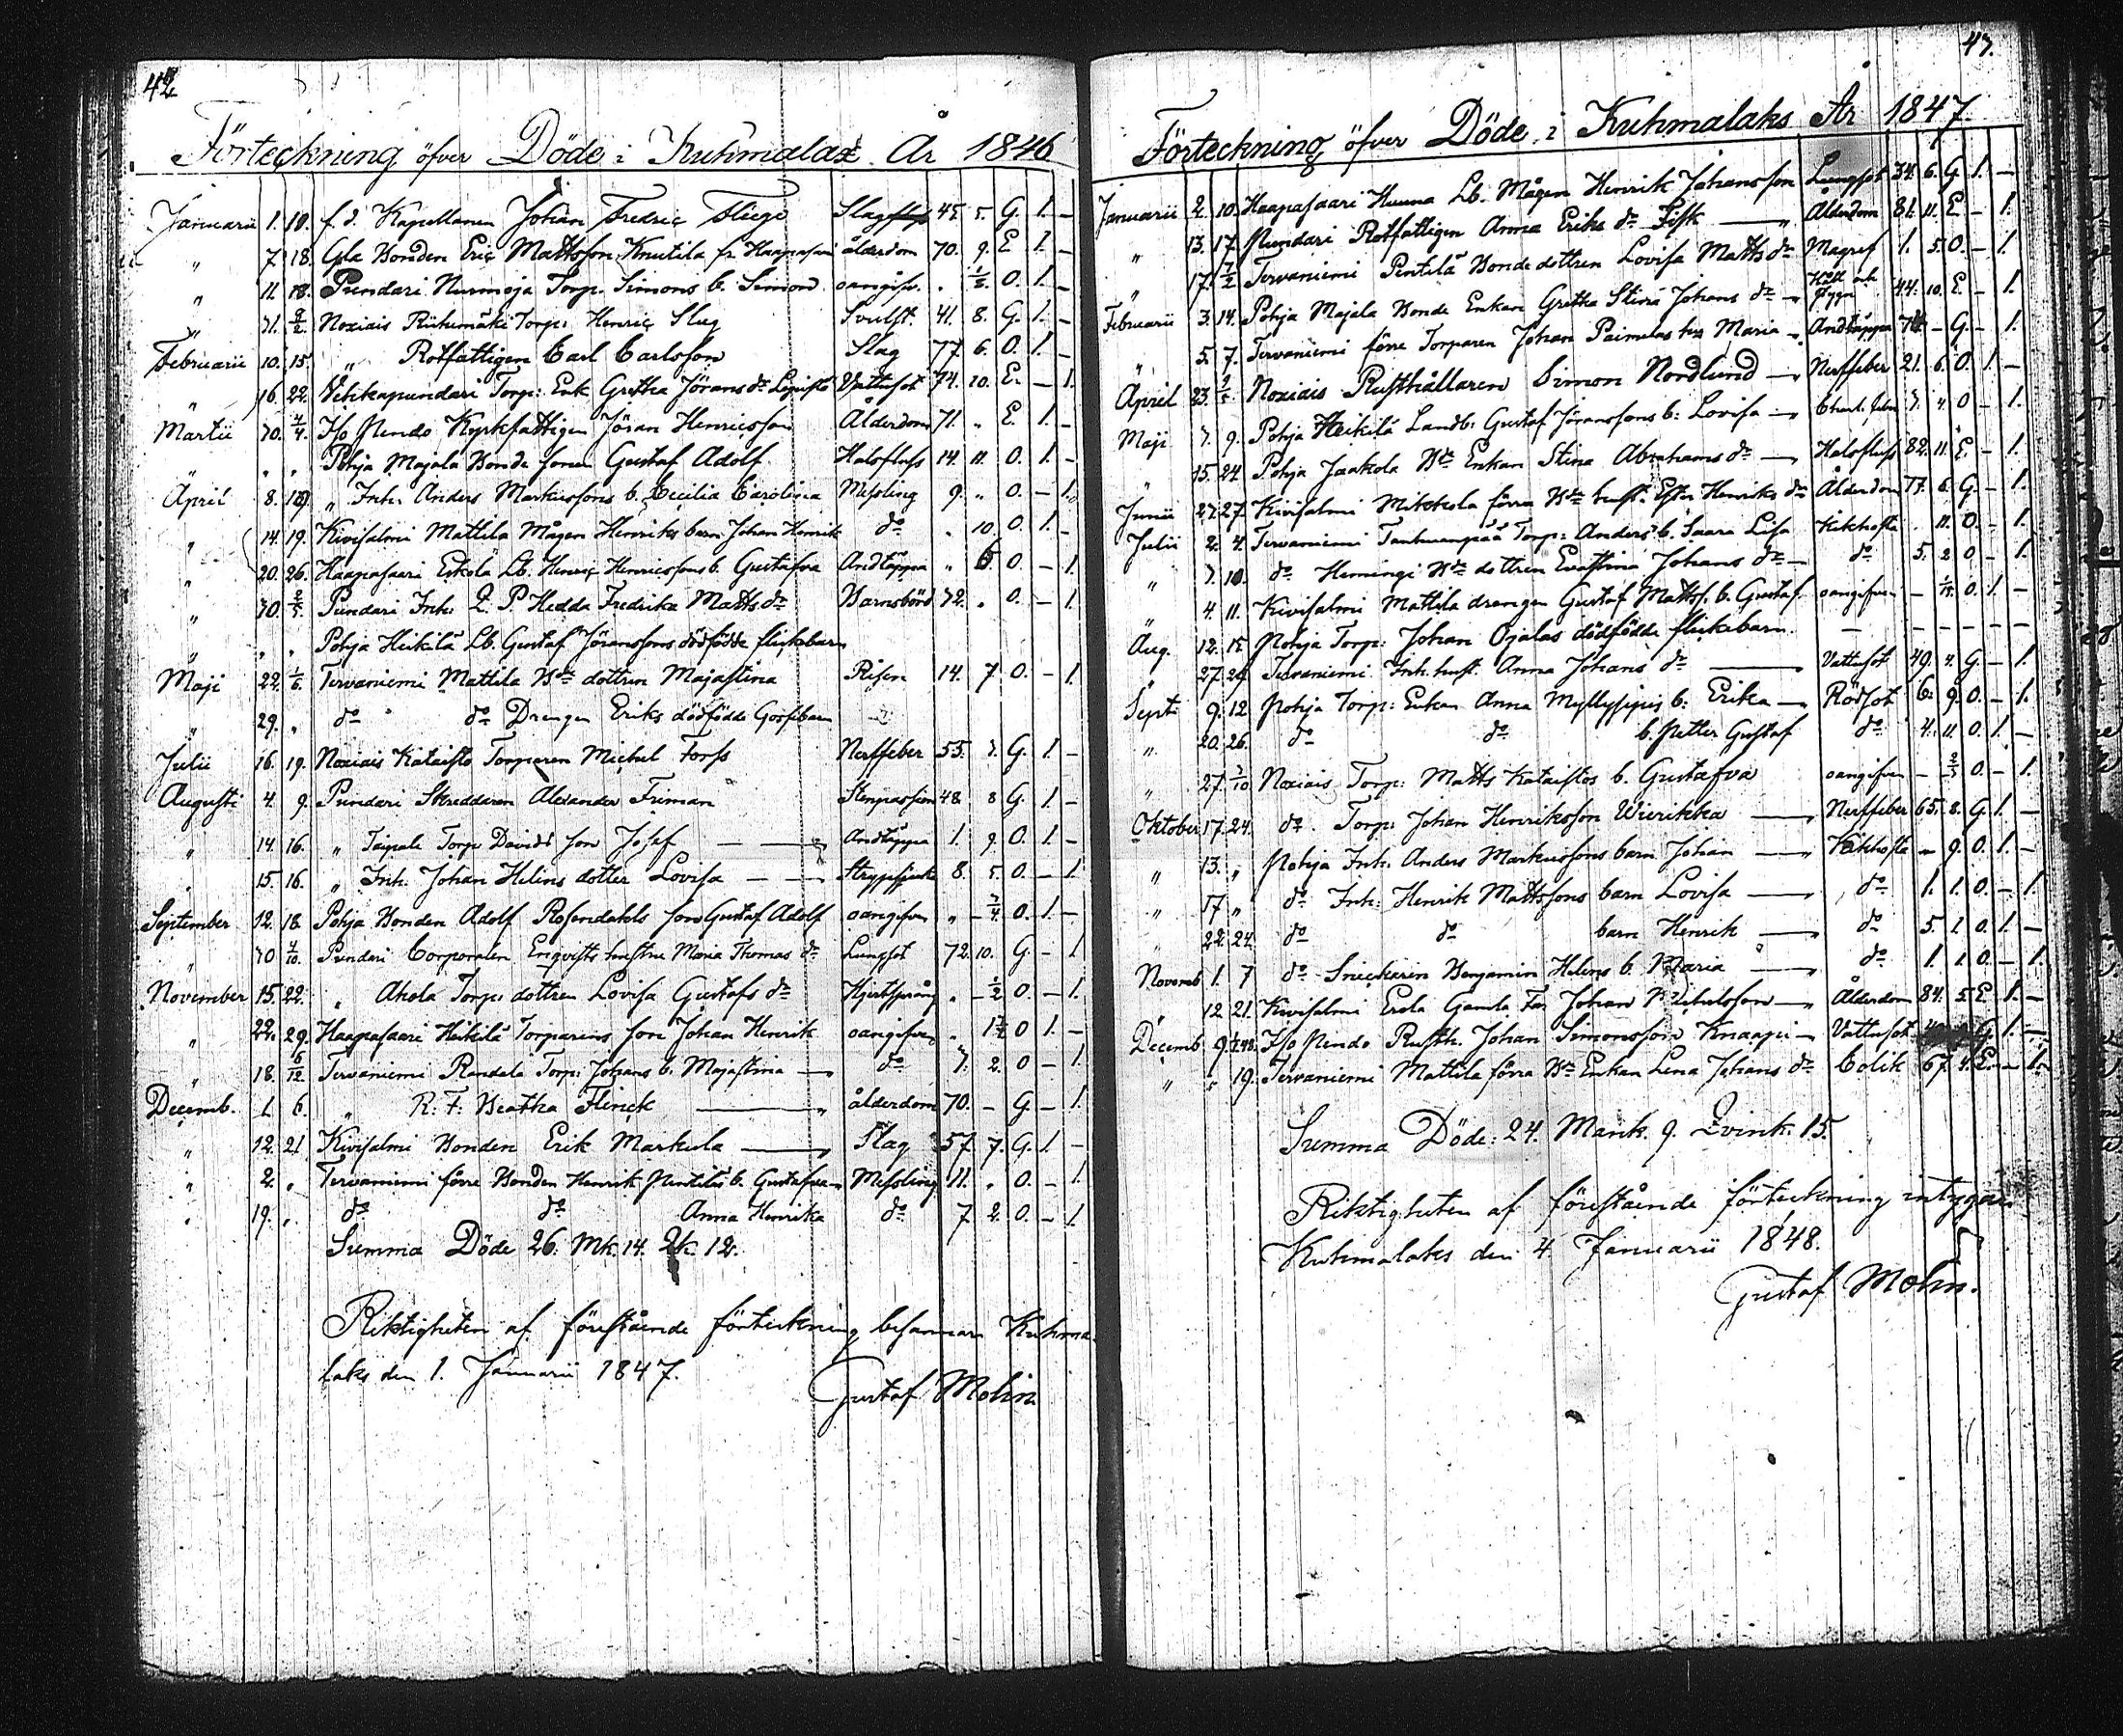 42
Förteckning öfver Döde i Kuhmalax År 1846
Januarii 1. 10. f. d. Kapellanen Johan Fredric Fliege Slag 45. 5. G. 1. –
" 7. 18. Gla Bonden Eric Mattsson Knutila fr. Haapasari ålderdom 70. 9. E 1. –
" 11. 18. Pundari Nurmoja Torp. Simons b. Simon oangifv. . O. 1. –
" 31. 8/2. Noxiais Riihimäki Torp: Henric Slug Svulst. 41. 8. G. 1. –
Februarii 10. 15. " Rotfattigen Carl Carlsson Slag 77. 6. O. 1. –
" 16. 22. Vehkapundari Torp: Enk. Gretha Jörans dr Vattusot 74. 10. E. – 1.
Martii 30. Iso Nendo Kyrkfattigen Jöran Henricsson Ålderdom 71. " E. 1. –
" " " Pohja Majala Bonde sonen Gustaf Adolf Halsfluss 14. 11. O. 1. –
April 8. 19. " Inh. Anders Markussons b. Cecilia Carolina Messling 9. " O. – 1.
" 14. 19. Kivisalmi Mattila Mågen Henriks barn Johan Henrik do . 10. O. 1. –
" 20. 26. Haapasaari Eskola Lb. Henric Henricssons b. Gustafva Andtäppa " 6 O. – 1.
" 30. Pundari Inh. Q. P. Hedda Fredrika Matts dr Barnsbörd 32. . O. – 1.
" " " Pohja Heikilä Lb. Gustaf Jöranssons dödfödde flickebarn
Maji 22. Tervaniemi Mattila Bde dottren Majastina Risen 14. 7 O. – 1.
" 29. " do do Drengen Eriks dödfödde Gossebarn –
Julii 16. 19. Noxiais Kataisto Torparen Michel Forss Nerffeber 55. 3. G. 1. –
Augusti 4. 9. Pundari Skreddaren Alexander Friman Stenpassion 48 8 G. 1. –
" 14. 16. " Taipale Torp Davids son Josef Andtäppa 1. 9. O. 1. –
" 15. 16. " Inh. Johan Helins dotter Lovisa Strypsjuk 8. 5. O. – 1.
September 12. 18. Pohja Bonden Adolf Rosendahls son Gustaf Adolf oangifven " 3/4. O. 1. –
" 30 4/10. Pundari Corporalen Enqvists hustru Maria Thomas dr Lungsot 72. 10. G. – 1
November 15. 22. " Ahola Torp: dottren Lovisa Gustafs dr Hjertsprång " 1/2 O. – 1.
" 22. 29. Haapasaari Heikilä Torparens son Johan Henrik oangifven " O 1. –
" 18. 6/12. Tervaniemi Randala Torp: Johans b. Majastina do 3. 2. O – 1.
Decemb. 1. 6. " R. F. Beatha Flinck ålderdom 70. – G – 1.
" 12. 21 Kivisalmi Bonden Erik Markula Slag 57 7. G. 1. –
" 2. " Tervaniemi förre Bonden Henrik Pentiläs b. Gustafva Messling 11. . O. – 1.
" 19. " do do Anna Henrika do 7 2. O. – 1.
Summa Döde 26. Mk. 14. Qk. 12.
Riktigheten af förestående förteckning besannar Kuhma-
laks den 1. Januarii 1847.
Gustaf Molin
43.
Förteckning öfver Döde i Kuhmalaks År 1847
Januarii 2. 10. Haapasaari Hunna Lb. Mågen Henrik Johansson Lungsot 34. 6. G. 1. –
" 13. 17. Pundari Rotfattigen Anna Eriks dr Fisk Ålderdom 81. 11. E – 1.
" 17. 7/2 Tervaniemi Pentilä Bonde dottren Lovisa Matts dr Magref 1. 5. O. – 1.
Februarii 3. 14. Pohja Majala Bonde Enkan Gretha Stina Johans dr Håll och Stygn 44. 10. E. – 1.
" 5. 7. Tervaniemi förre Torparen Johan Paimelas hu Maria Andtäppa – G. – 1.
April 23. Noxiais Rusthållaren Simon Nordlund Nerffeber 21. 6 O. 1. –
Maji 3. 9. Pohja Heikilä Landb: Gustaf Jöranssons b: Lovisa 3. 4. O – 1.
" 15. 24 Pohja Jaakola Bde Enkan Stina Abrahams dr Halsfluss 82. 11. E. – 1.
Junii 23. 27. Kivisalmi Mikkola förra Bde hust. Ester Henriks dr Ålderdom 77. 6. G. – 1.
Julii 2. 4. Tervaniemi Torp: Anders b. Saara Lisa Kikhosta . 11. O. – 1.
" 3. 10. do Hemingi Bde dottren Evastina Johans dr do 5. 2 O – 1.
" 4. 11. Kivisalmi Mattila drengen Gustaf Matts. b. Gustaf oangifven – O. 1. –
Aug. 12. 15 Pohja Torp: Johan Ojalas dödfödde flickebarn. – – – – –
27. 29 Tervaniemi Inh. hust. Anna Johans dr Vattusot 49. 4. G – 1.
Sept: 9. 12 Pohja Torp: Enkan Anna Myllysepis b: Erika Rödsot 6. 9. O. – 1.
" 20. 26. do do b. Petter Gustaf do 4. 11. O. 1. –
" 27. 3/10 Noxiais Torp: Matts Kataistos b. Gustafva oangifven – O. – 1.
Oktober 17. 24. do. Torp: Johan Henriksson Wierikka Nerffeber 65. 8. G. 1. –
" 13. " Pohja Inh. Anders Markussons barn Johan Kikhosta – 9. O. 1. –
" 17 " do Inh: Henrik Mattssons barn Lovisa do 1. 1. O. – 1.
" 22. 24. do do barn Henrik do 5. 1 O. 1. –
Novemb 1. 7 do Snickaren Benjamin Helins b. Maria do 1. 1 O. – 1.
12 21. Kivisalmi Erola Gamla Far Johan Michelsson Ålderdom 84. 5 E 1. –
Decemb 9. Iso Nendo Rusth. Johan Simonsson Knaapi Vattusot G. 1. –
" " 19. Tervaniemi Mattila förra Bde Enkan Lena Johans dr Colik 67 4. E. – 1.
Summa Döde: 24. Mank. 9. Qvink. 15.
Riktigheten af förestående förteckning intygar
Kuhmalaks den 4. Januarii 1848.
Gustaf Molin.